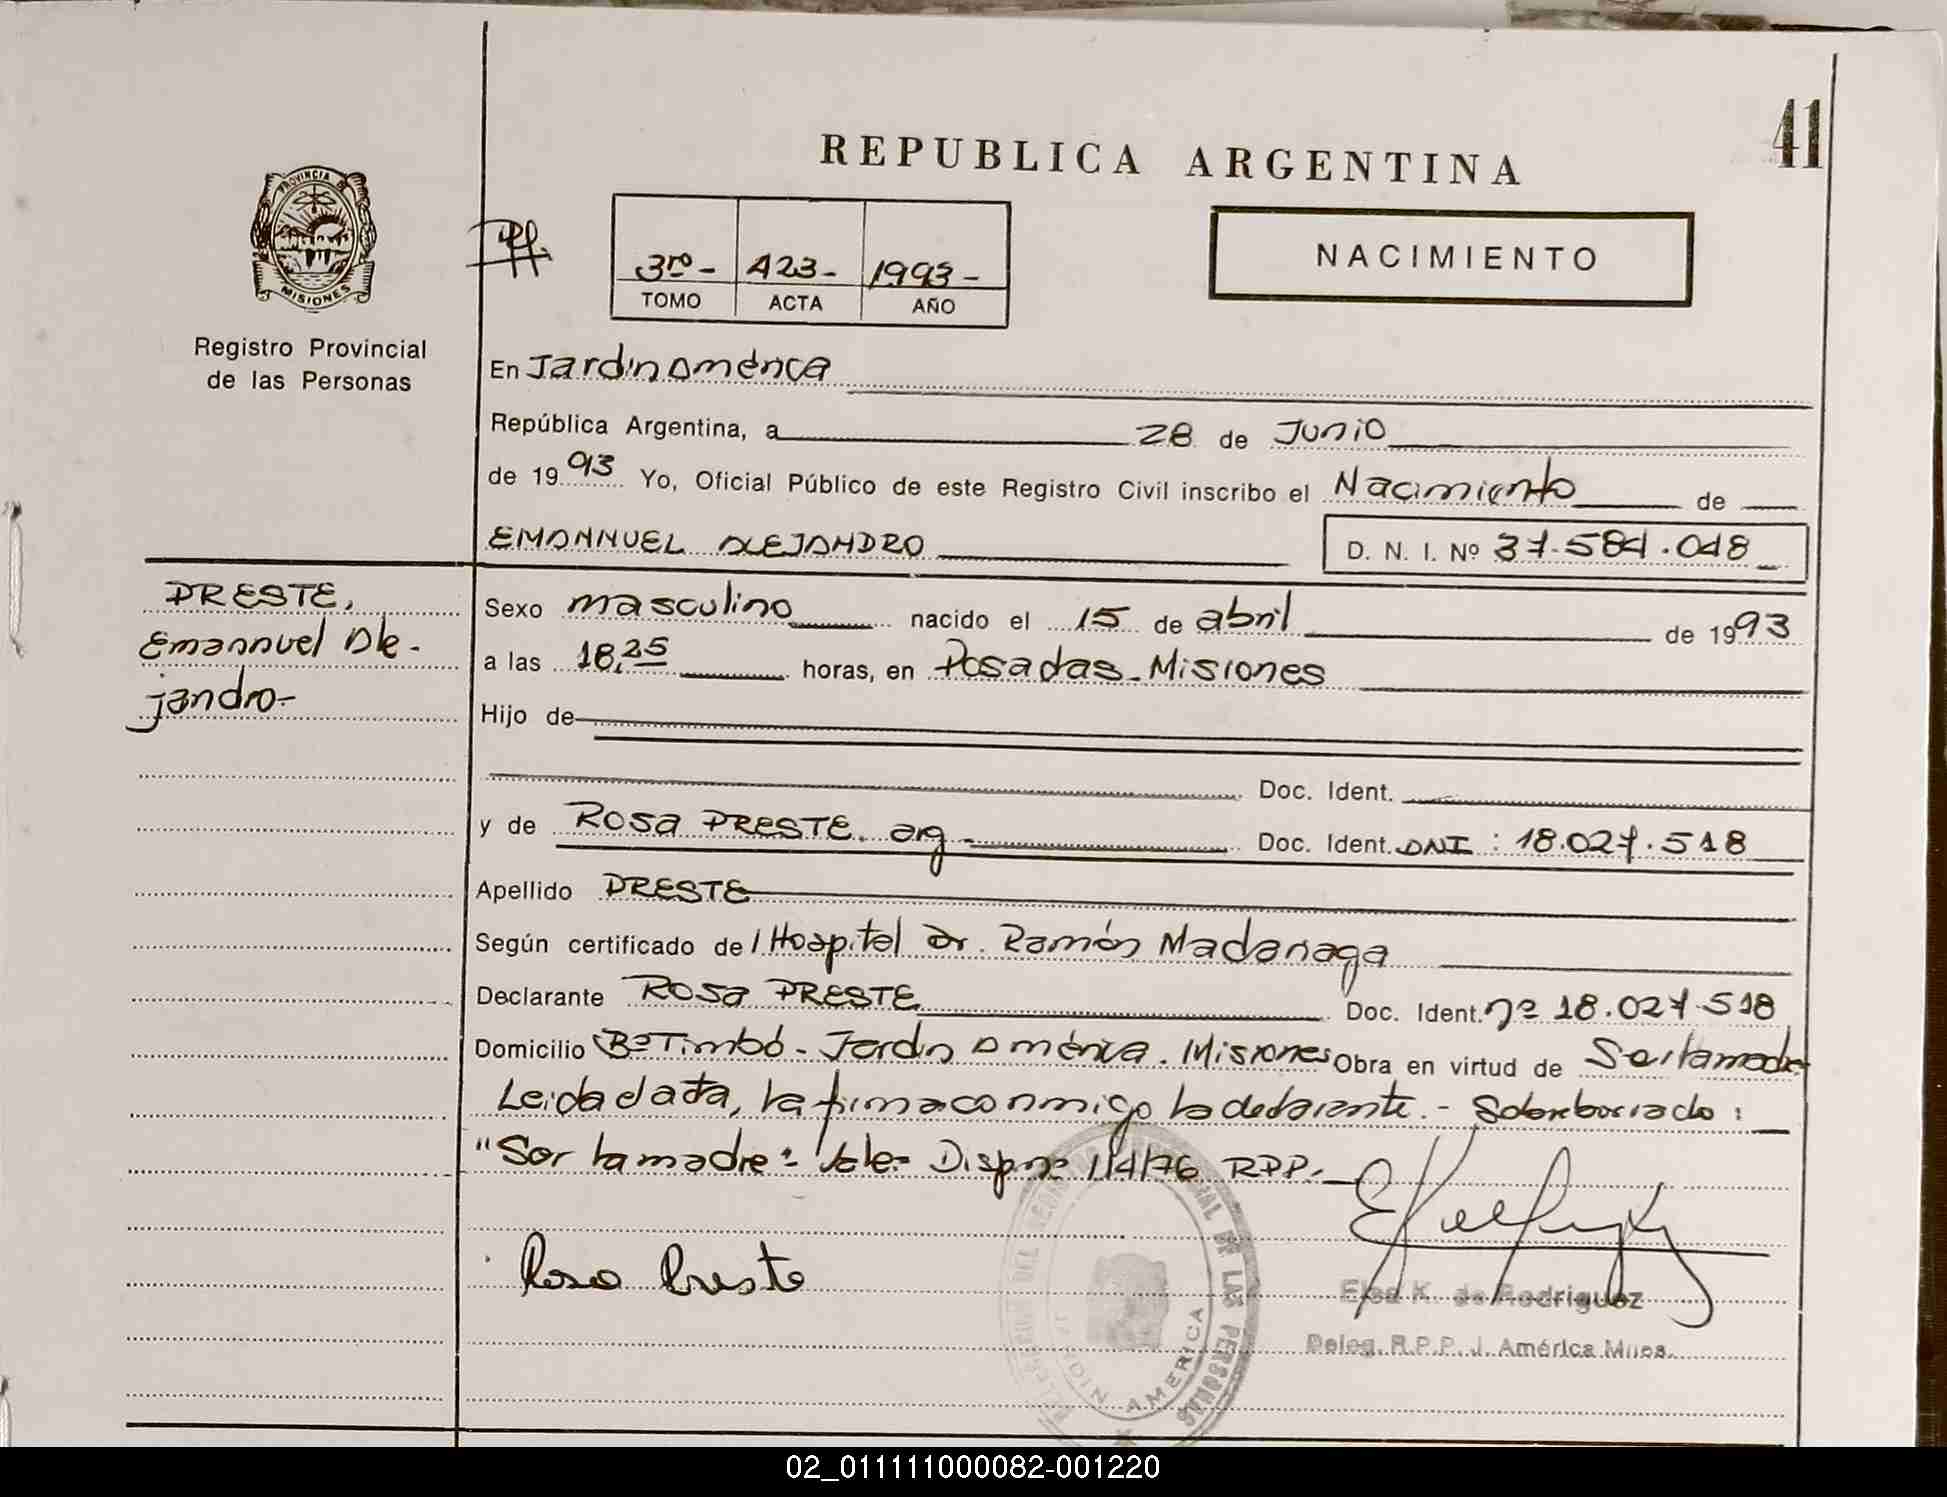 41
REPUBLICA ARGENTINA
PROVINCIA DE
MISIONES
Registro Provincial
de las Personas
3ro - 423 - 1993 -
TOMO ACTA AÑO
NACIMIENTO
En Jardin América
República Argentina, a 28 de Junio
de 1993 Yo, Oficial Público de este Registro Civil inscribo el Nacimiento de
EMANNUEL ALEJANDRO D. N. I. Nº 37.584.048
PRESTE,
Emannuel Ale-
jandro-
Sexo masculino nacido el 15 de abril de 1993
a las 18,25 horas, en Posadas - Misiones
Hijo de
Doc. Ident.
y de ROSA PRESTE, arg - Doc. Ident. DNI : 18.027.518
Apellido PRESTE
Según certificado del Hospital Dr. Ramón Madariaga
Declarante ROSA PRESTE Doc. Ident. nº 18.027.518
Domicilio Bº Timbó - Jardin América. Misiones Obra en virtud de Ser la madre
Leida el acta, la firma conmigo la declarante. - Sobreborrado :
"Ser la madre" Vale- Disp. nº 1/4/76 RPP. -
Rosa Preste
Elsa K. de Rodriguez
Deleg. R.P.P. J. América Mnes.
JARDIN AMERICA
02_011111000082-001220